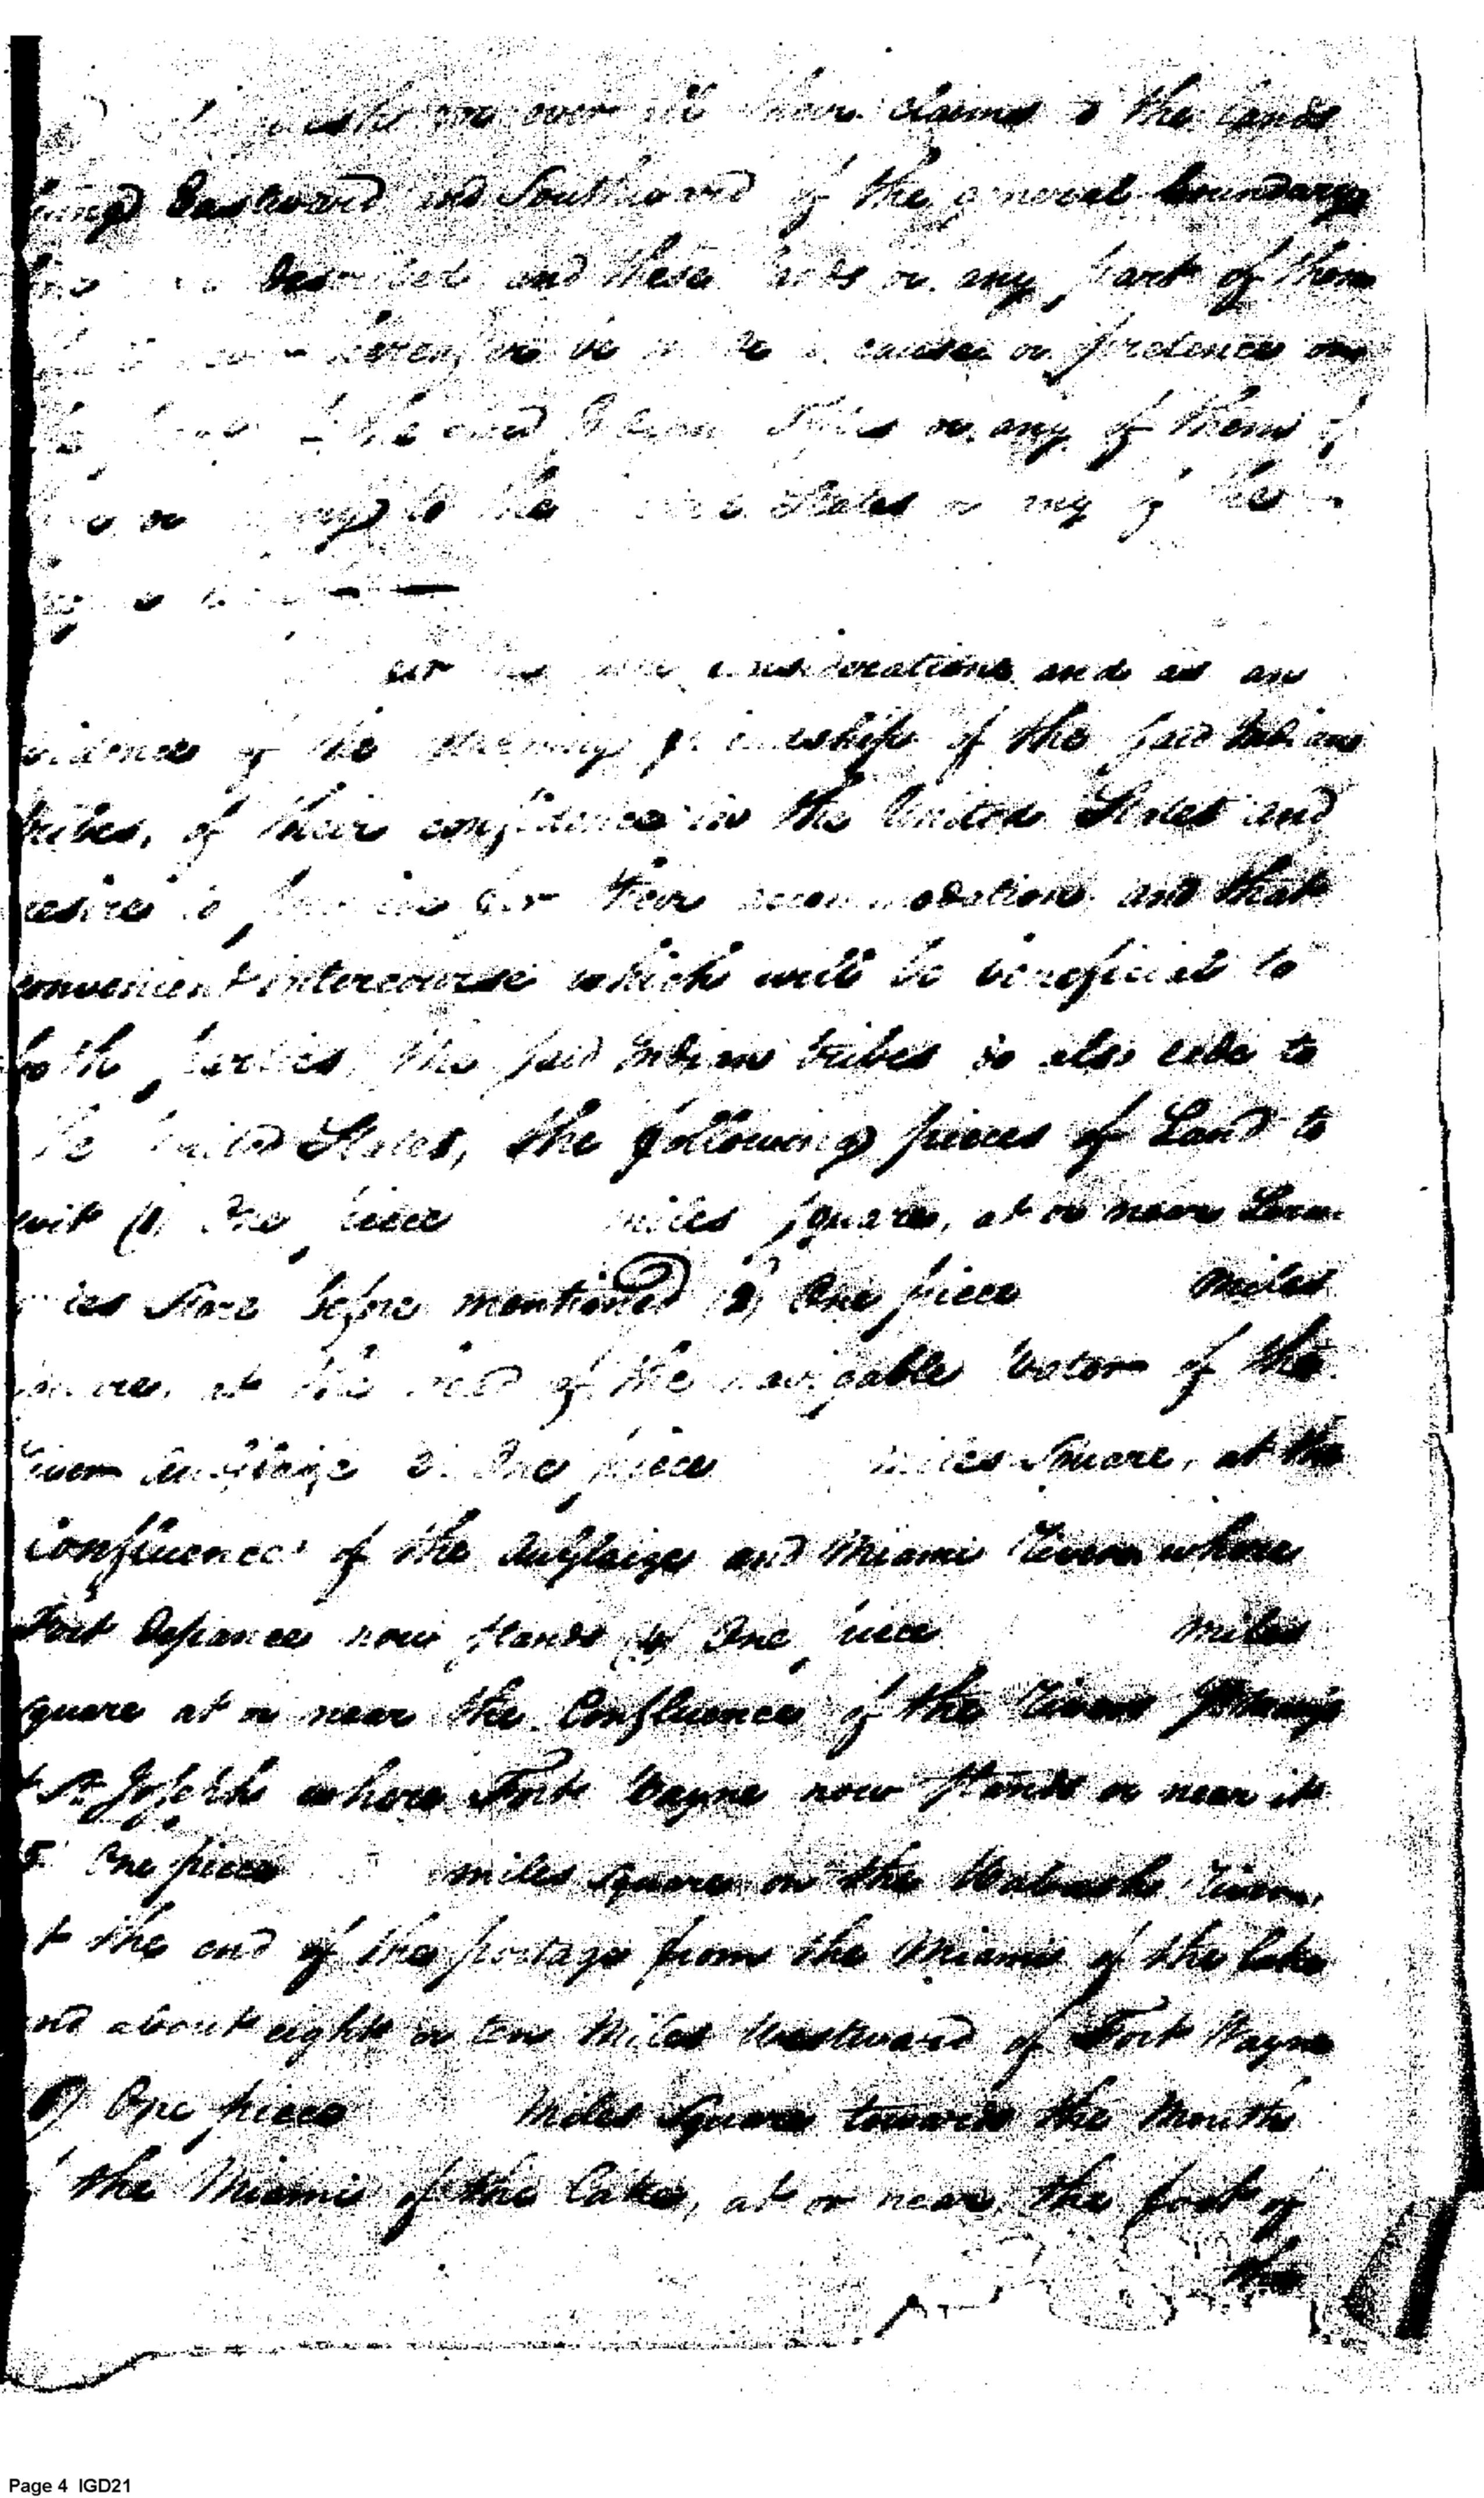 over all their claims to the lands
lying Eastward and Southward of the general boundary
line described and these lands or any part of them
hereafter be made a cause or pretence on
the said Indian Tribes or any of them of
or injury to the States or any of the

considerations and as an
evidence of the returning friendship of the said Indians
tribes, of their confidence in the United States and
desire to provide for their accommodation and that
convenient intercourse which will be beneficial to
both parties, the said Indian tribes do also cede to
the United States, the following pieces of Land to
wit (1) One piece miles square, at or near Lorom
ies Store before mentioned (2) One piece miles
square, at the head of the navigable water of the
River Auglaize 3. One piece miles Square, at the
Confluence of the Auglaize and Miami Rivers where
Fort Defiance now stands (4) One piece miles
square at or near the Confluence of the Rivers St Marys
& St Josephs where Fort Wayne now stands or near it
5. One piece miles square on the Wabash River,
at the end of the portage from the Miami of the lake
and about eight or ten Miles Westward of Fort Wayne
6) One piece Miles Square towards the Mouth
of the Miami of the Lake, at or near the foot of
the
Page 4 IGD21